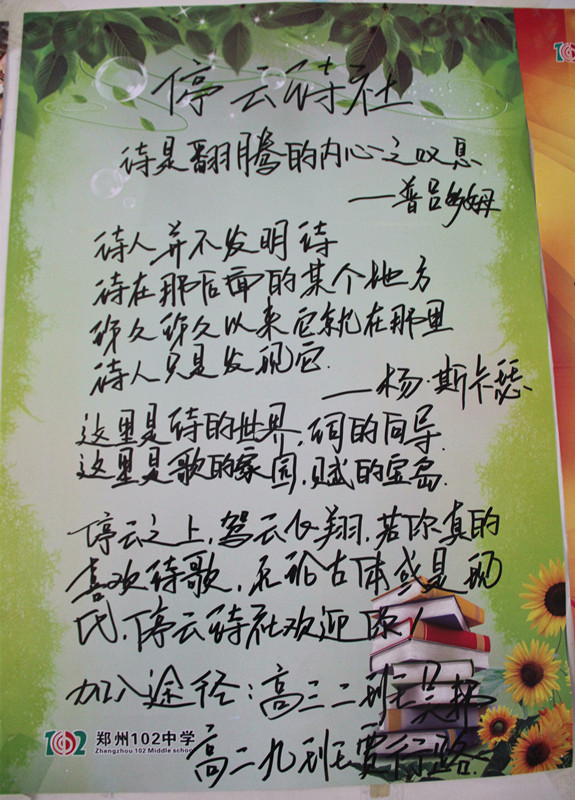 停云诗社
诗是翻腾的内心之叹息
——普吕多姆
诗人并不发明诗
诗在那后面的某个地方
很久很久以来它就在那里
诗人只是发现它.
——杨·斯卡瑟
这里是诗的世界,词的向导.
这里是歌的家园,赋的宝岛.
停云之上,驾云飞翔,若你真的
喜欢诗歌,无论古体或是现
代,停云诗社欢迎你!
加入途径:高三二班
高二九班贾行路.
102 郑州102中学
Zhengzhou 102 Middle school